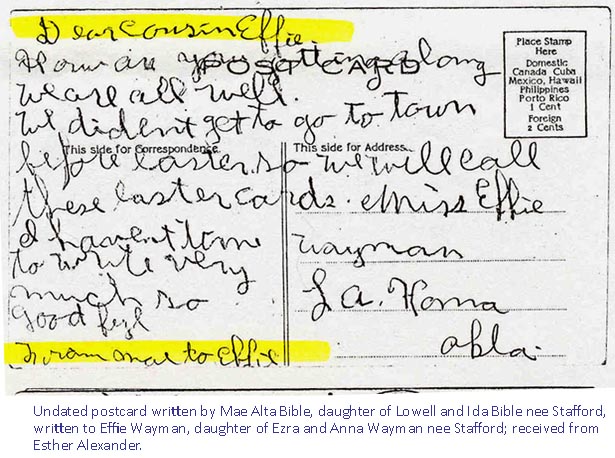 Dear Cousin Effie.
How are you getting along
POST CARD
we are all well.
we dident get to go to town
before easter so we will call
these easter cards.
I havent time
to write very
much so
Good
From Mae to Effie
This side for Correspondence.
This side for Address.
Miss Effie
Wayman
La. Homa
Okla.
Place Stamp
Here
Domestic
Canada Cuba
Mexico, Hawaii
Philippines
Porto Rico
1 Cent
Foreign
2 Cents
Undated postcard written by Mae Alta Bible, daughter of Lowell and Ida Bible nee Stafford,
written to Effie Wayman, daughter of Ezra and Anna Wayman nee Stafford; received from
Esther Alexander.